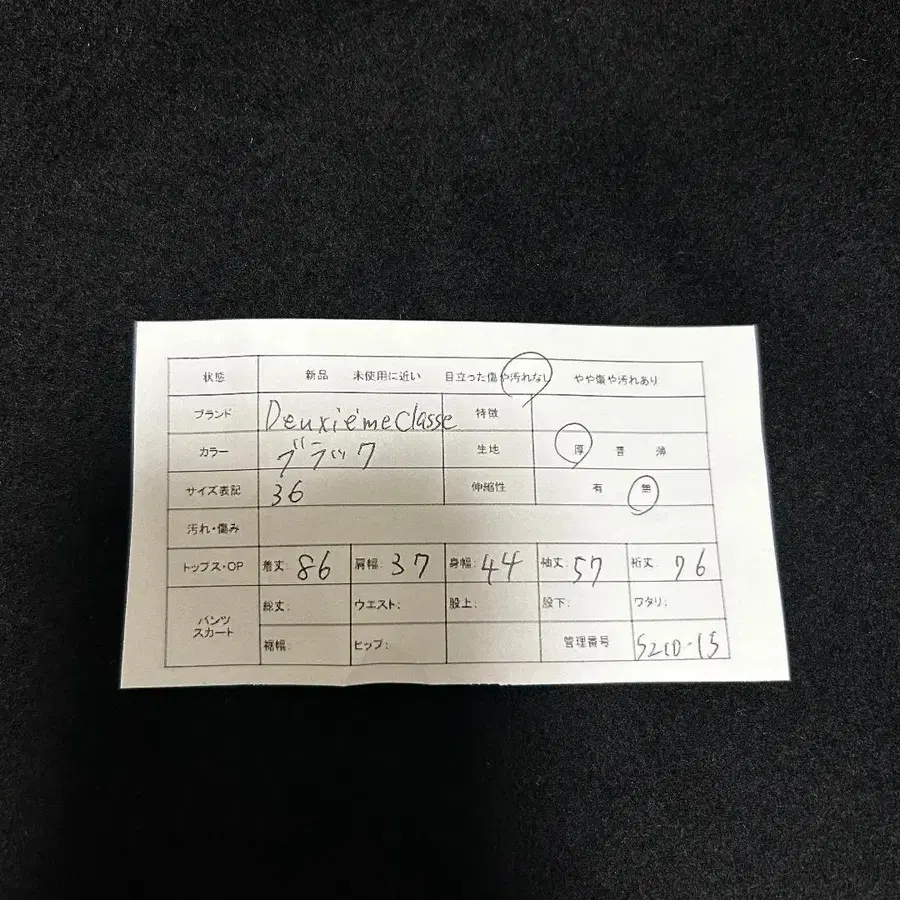 状態 新品 未使用に近い 目立った傷や汚れなし やや傷や汚れあり
ブランド Deuxiéme Classe 特徴
カラー ブラック 生地 厚 普 薄
サイズ表記 36 伸縮性 有 無
汚れ・傷み
トップス・OP 着丈: 86 肩幅: 37 身幅: 44 袖丈: 57 裄丈: 76
パンツ スカート 総丈: ウエスト: 股上: 股下: ワタリ:
裾幅: ヒップ: 管理番号 S210-15